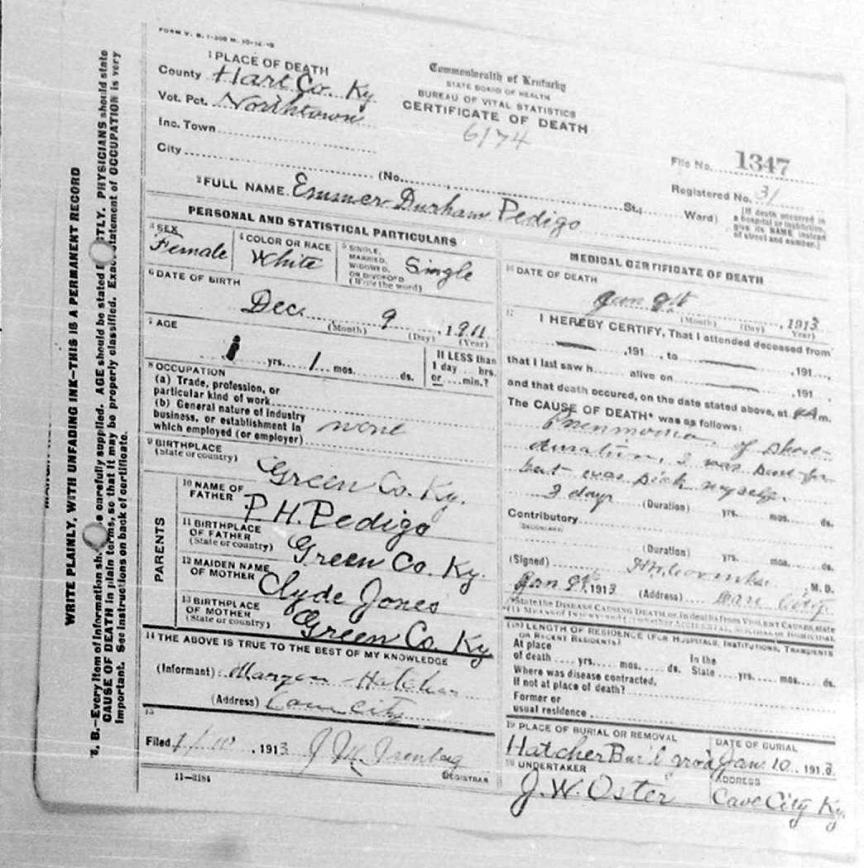 FORM V. S. 1-200 M. 10-12-12
1 PLACE OF DEATH
County Hart Co. Ky.
Vot. Pct. Northtown
Inc. Town
City
(No. St.; Ward)
Commonwealth of Kentucky
STATE BOARD OF HEALTH
BUREAU OF VITAL STATISTICS
CERTIFICATE OF DEATH
6174
File No. 1347
Registered No. 31
[If death occurred in a hospital or institution, give its NAME instead of street and number.]
2 FULL NAME Emmer Durham Pedigo
PERSONAL AND STATISTICAL PARTICULARS
3 SEX Female
4 COLOR OR RACE White
5 SINGLE, MARRIED, WIDOWED, OR DIVORCED (Write the word) Single
6 DATE OF BIRTH
Dec. 9, 1911
(Month) (Day) (Year)
7 AGE
1 yrs. 1 mos. ds.
If LESS than 1 day hrs. or min.?
8 OCCUPATION
(a) Trade, profession, or particular kind of work
(b) General nature of industry business, or establishment in which employed (or employer) none
9 BIRTHPLACE (State or country) Green Co. Ky.
PARENTS
10 NAME OF FATHER P. H. Pedigo
11 BIRTHPLACE OF FATHER (State or country) Green Co. Ky.
12 MAIDEN NAME OF MOTHER Clyde Jones
13 BIRTHPLACE OF MOTHER (State or country) Green Co. Ky
14 THE ABOVE IS TRUE TO THE BEST OF MY KNOWLEDGE
(Informant) Hatcher
(Address) City
15
Filed 1/10, 1913
REGISTRAR
11-3184
MEDICAL CERTIFICATE OF DEATH
16 DATE OF DEATH
Jan 9th, 1913
(Month) (Day) (Year)
17 I HEREBY CERTIFY, That I attended deceased from
, 191 , to , 191 ,
that I last saw h alive on , 191 ,
and that death occured, on the date stated above, at m.
The CAUSE OF DEATH* was as follows:
Pneumonia, of short
duration, I was sent for
but was sick myself.
3 days (Duration) yrs. mos. ds.
Contributory
(SECONDARY)
(Duration) yrs. mos. ds.
(Signed) M. D.
Jan 9th, 1913 (Address)
*State the DISEASE CAUSING DEATH, or, in deaths from VIOLENT CAUSES, state
18 LENGTH OF RESIDENCE (FOR HOSPITALS, INSTITUTIONS, TRANSIENTS OR RECENT RESIDENTS)
At place of death yrs. mos. ds. In the State yrs. mos. ds.
Where was disease contracted, if not at place of death?
Former or usual residence
19 PLACE OF BURIAL OR REMOVAL Hatcher Bur'l
DATE OF BURIAL Jan. 10, 1913
20 UNDERTAKER J. W. Oster
ADDRESS Cave City Ky.
WRITE PLAINLY, WITH UNFADING INK—THIS IS A PERMANENT RECORD
N. B.—Every item of information carefully supplied. AGE should be stated PHYSICIANS should state
CAUSE OF DEATH in plain terms, so that it may be properly classified. statement of OCCUPATION is very
important. See instructions on back of certificate.